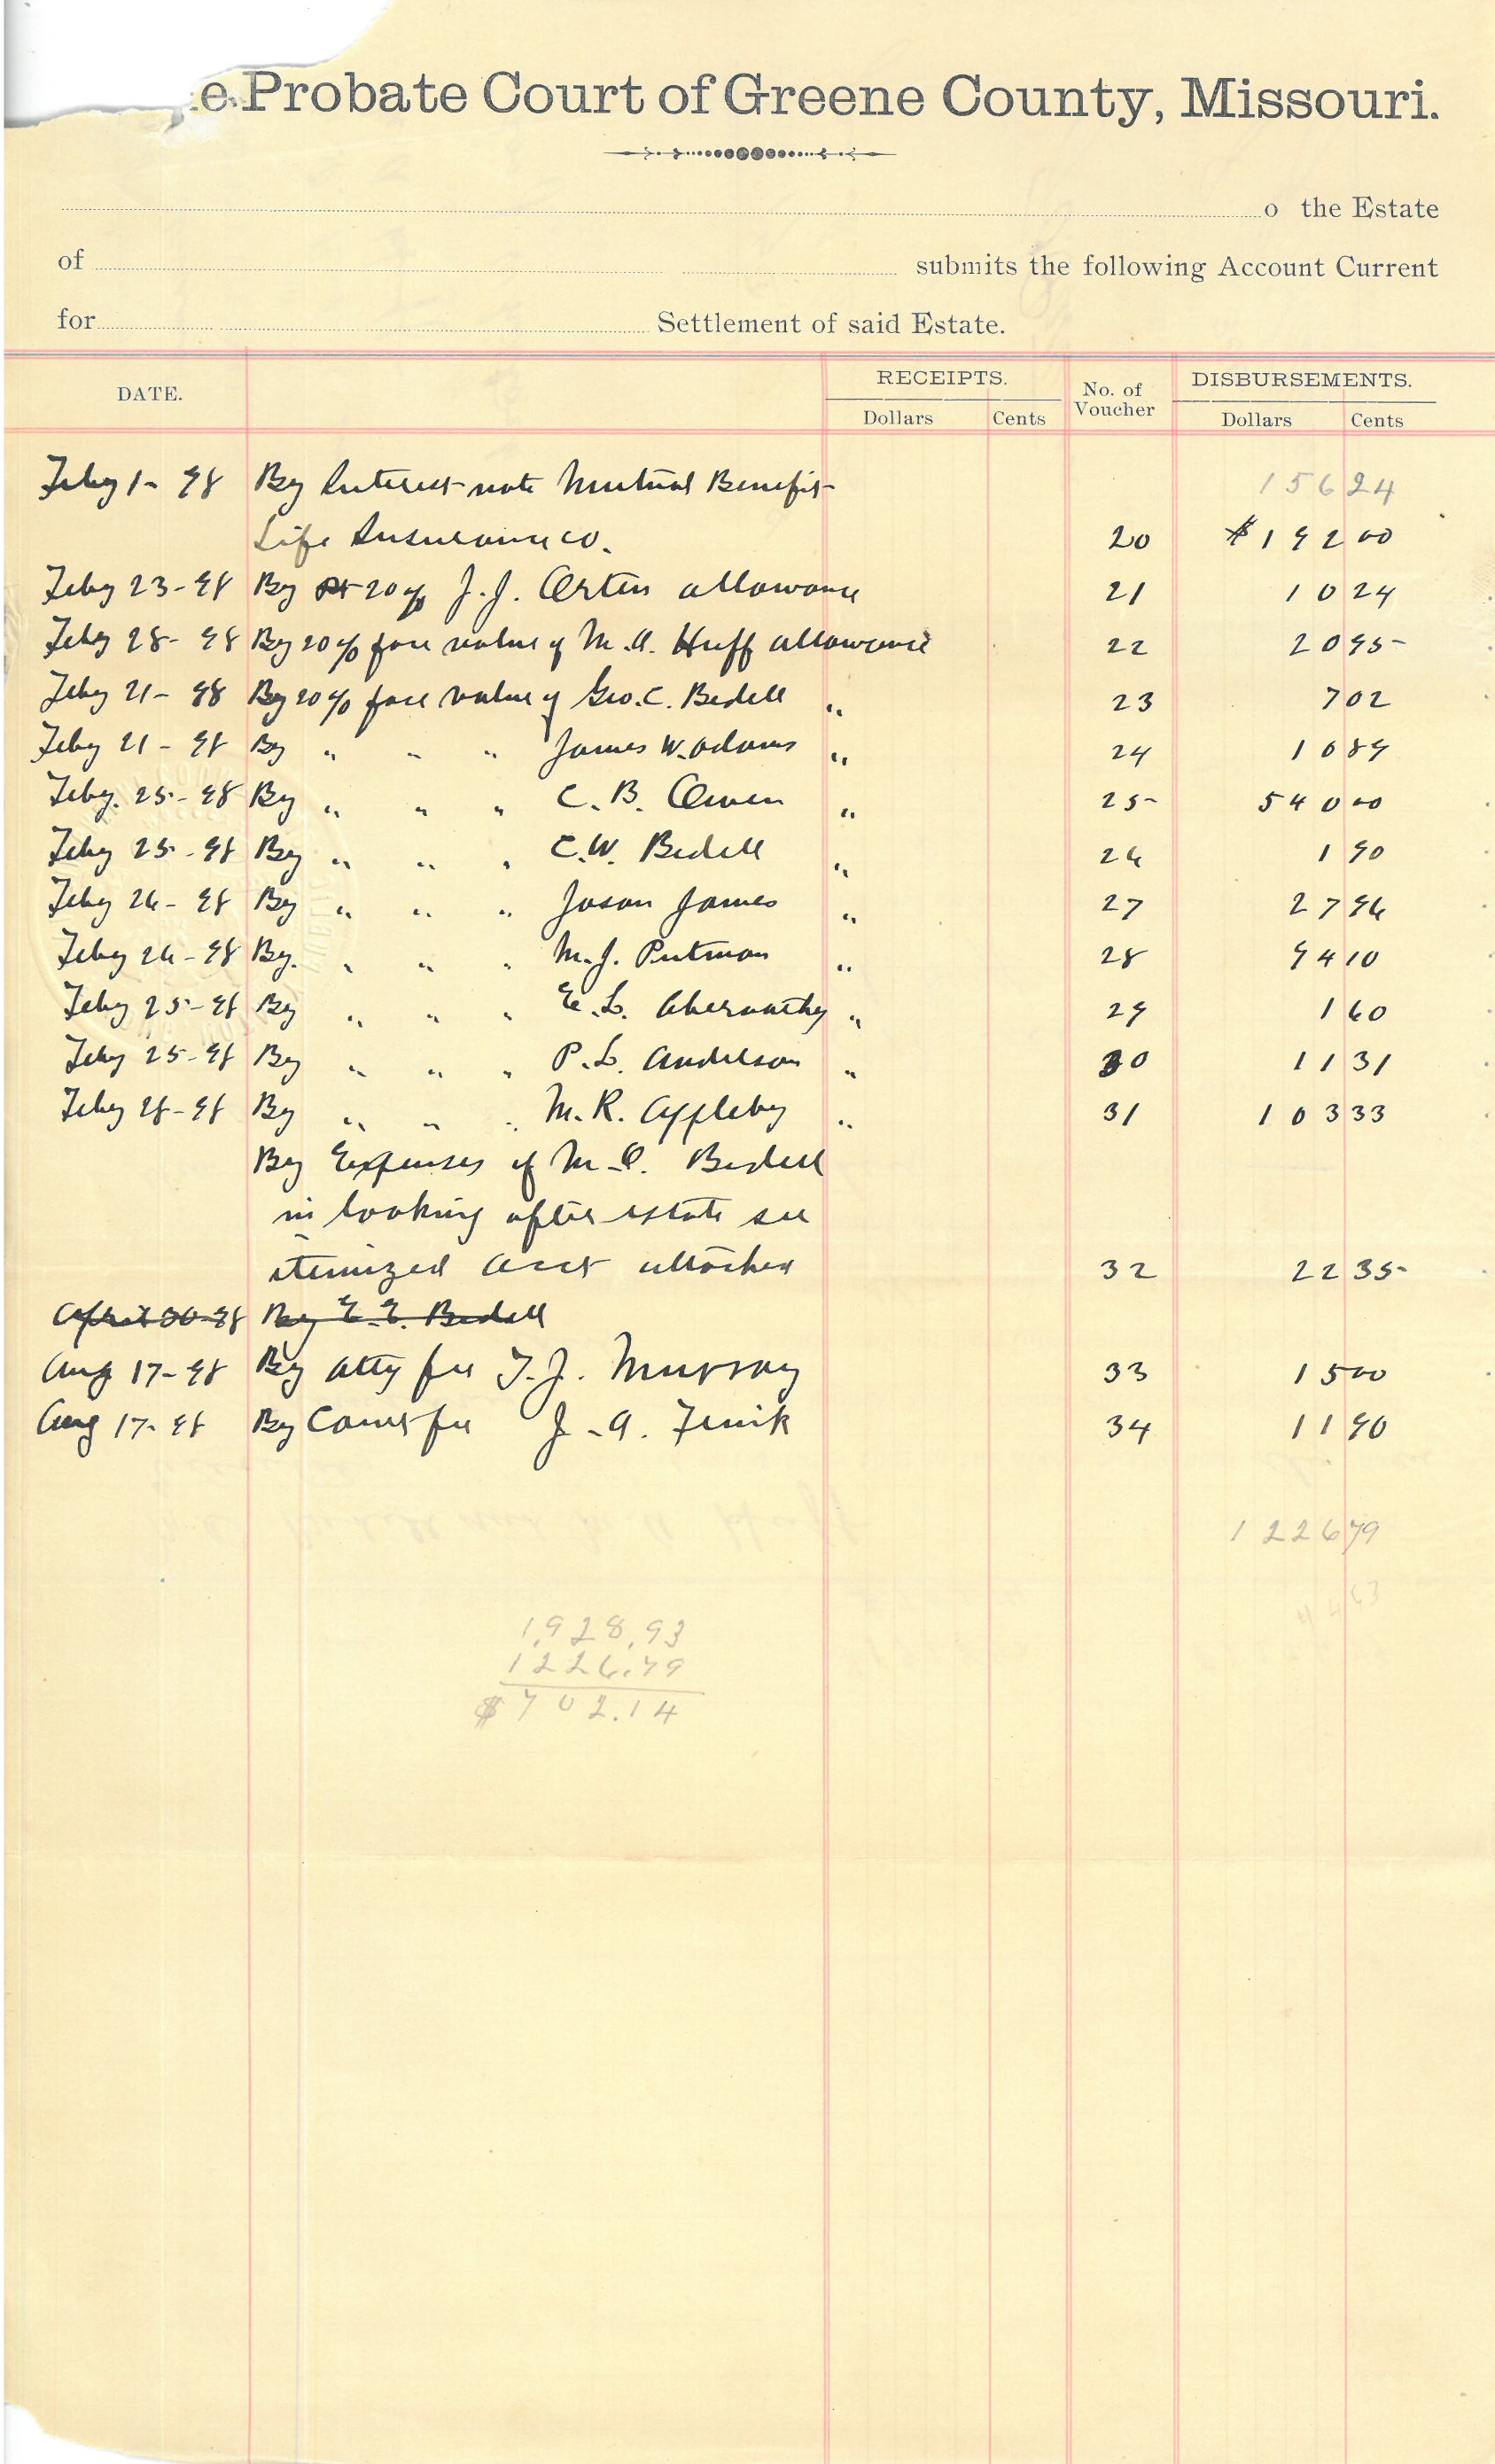 e Probate Court of Greene County, Missouri.
o the Estate
of submits the following Account Current
for Settlement of said Estate.
DATE. RECEIPTS. No. of Voucher DISBURSEMENTS.
Dollars Cents Dollars Cents
Feby 1- 98 By Interest note Mutual Benefit 156 24
Life Insurance Co. 20 $192 00
Feby 23-98 By 20% J. J. Orten allowance 21 10 24
Feby 28-98 By 20% face value of M. A. Huff allowance 22 20 95
Feby 21-98 By 20% face value of Geo. C. Bedell " 23 7 02
Feby 21-98 By " " " James W. Adams " 24 10 89
Feby. 25-98 By " " " C. B. Owen " 25 540 00
Feby 25-98 By " " " C. W. Bedell " 26 1 90
Feby 26-98 By " " " Jason James " 27 27 96
Feby 26-98 By. " " " M. J. Putman " 28 94 10
Feby 25-98 By " " " E. L. Abernathy " 29 1 60
Feby 25-98 By " " " P. L. Anderson " 30 11 31
Feby 28-98 By " " " M. R. Appleby " 31 103 33
By Expenses of M. E. Bedell
in looking after estate see
itemized acct attached 32 22 35
April 30-98 By E. E. Bedell
Aug 17-98 By Atty fee T. J. Murray 33 15 00
Aug 17-98 By Comr fee J. A. Fenik 34 11 90
1226 79
1,928,93
1226.79
$702.14